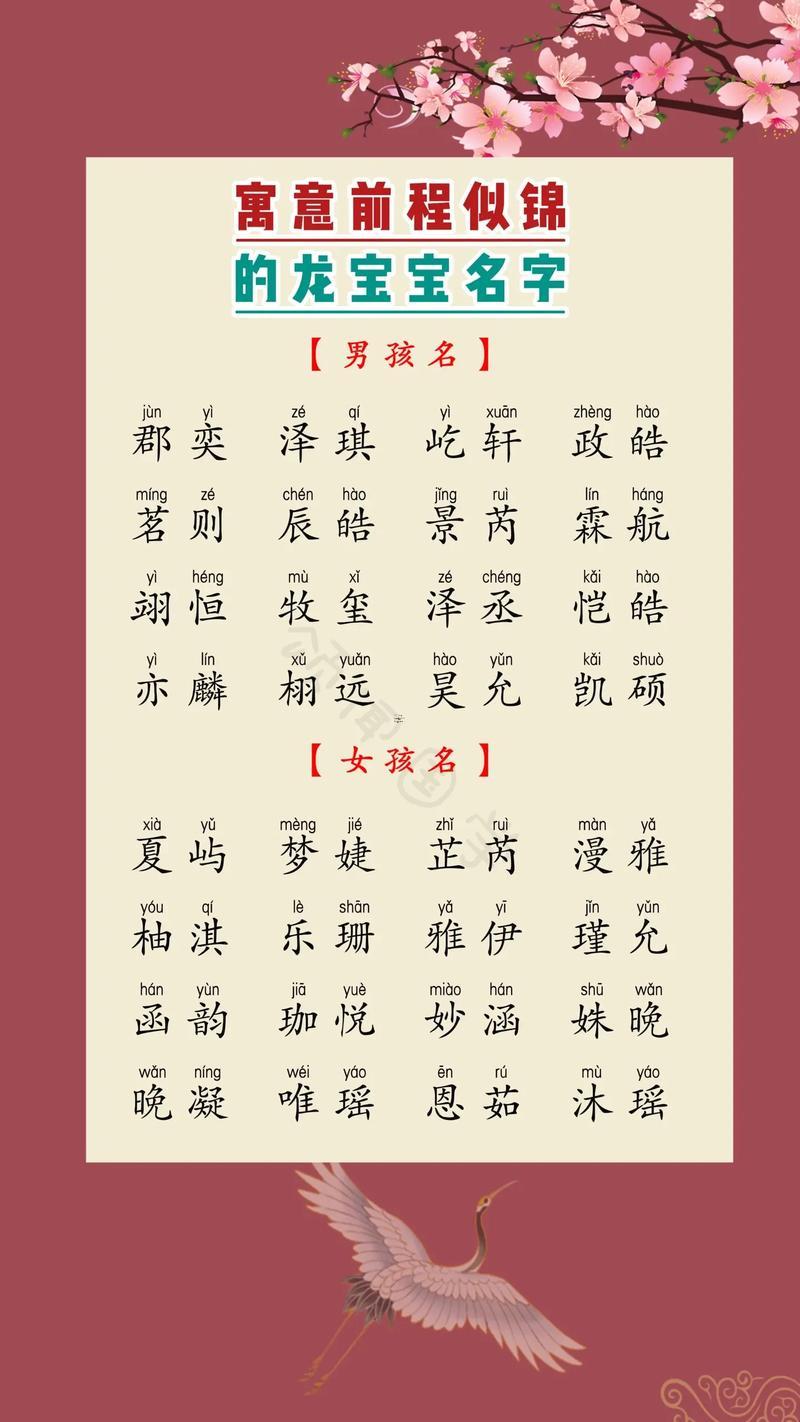 寓意前程似锦
的龙宝宝名字
【男孩名】
jùn yì zé qí yì xuān zhèng hào
郡奕 泽琪 屹轩 政皓
míng zé chén hào jǐng ruì lín háng
茗则 辰皓 景芮 霖航
yì héng mù xǐ zé chéng kǎi hào
翊恒 牧玺 泽丞 恺皓
yì lín xǔ yuǎn hào yǔn kǎi shuò
亦麟 栩远 昊允 凯硕
【女孩名】
xià yǔ mèng jié zhǐ ruì màn yǎ
夏屿 梦婕 芷芮 漫雅
yóu qí lè shān yǎ yī jǐn yǔn
柚淇 乐珊 雅伊 瑾允
hán yùn jiā yuè miào hán shū wǎn
函韵 珈悦 妙涵 姝晚
wǎn níng wéi yáo ēn rú mù yáo
晚凝 唯瑶 恩茹 沐瑶